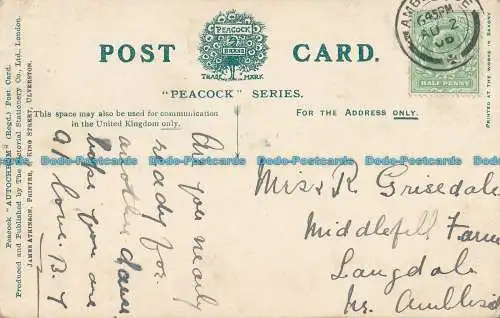 POST CARD.
PEACOCK
BRAND
TRADE MARK
"PEACOCK" SERIES.
This space may also be used for communication
in the United Kingdom only.
FOR THE ADDRESS ONLY.
Peacock "AUTOCHROM" (Regd.) Post Card.
Produced and Published by The Pictorial Stationery Co., Ltd., London.
JAMES ATKINSON, PRINTER, KING STREET, ULVERSTON.
PRINTED AT THE WORKS IN
AMBLESIDE
6 45 PM
AU 2
HALF PENNY
Are you nearly
ready for
another dance
hope you are
love. B. T
Miss R. Grisedale
Middlefell Farm
Langdale
Nr. Ambleside
bidStart
bidStart
bidStart
bidStart
bidStart